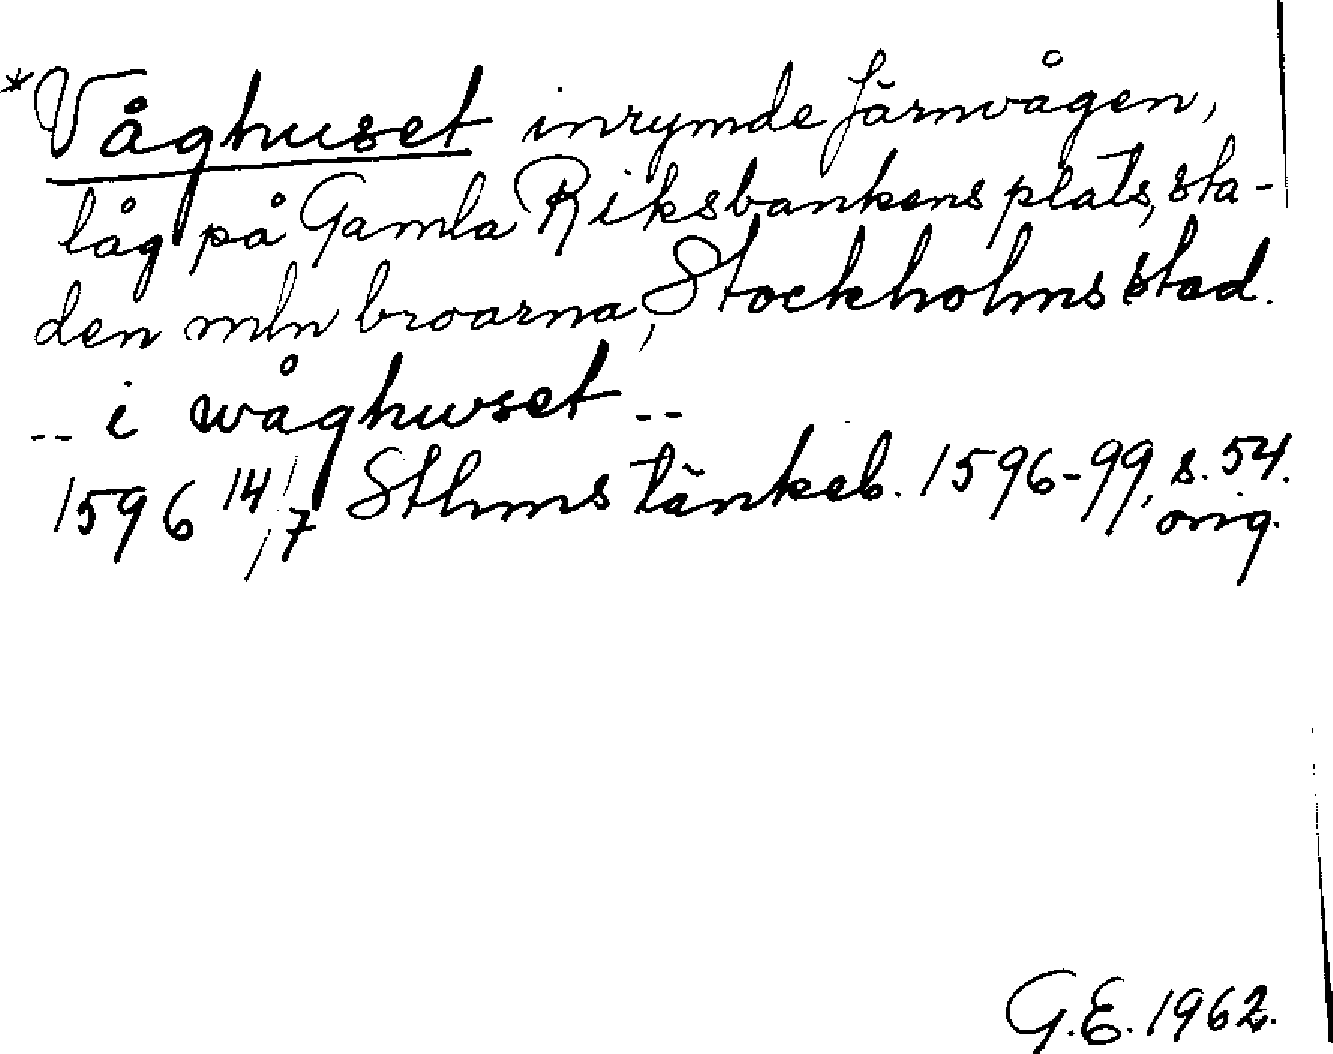 *Våghuset inrymde Järnvågen,
låg på Gamla Riksbankens plats, sta-
den mln broarna, Stockholms stad.
-- i wåghuset --
1596 14/7 Sthms tänkeb. 1596-99, s. 54.
orig.
G.E. 1962.